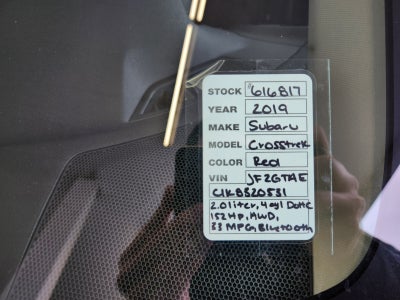 STOCK 616817
YEAR 2019
MAKE Subaru
MODEL Crosstrek
COLOR Red
VIN JF2GTAE
C1KB320531
2.0 liter, 4cyl DOHC
152 Hp, AWD,
33 MPG, Bluetooth